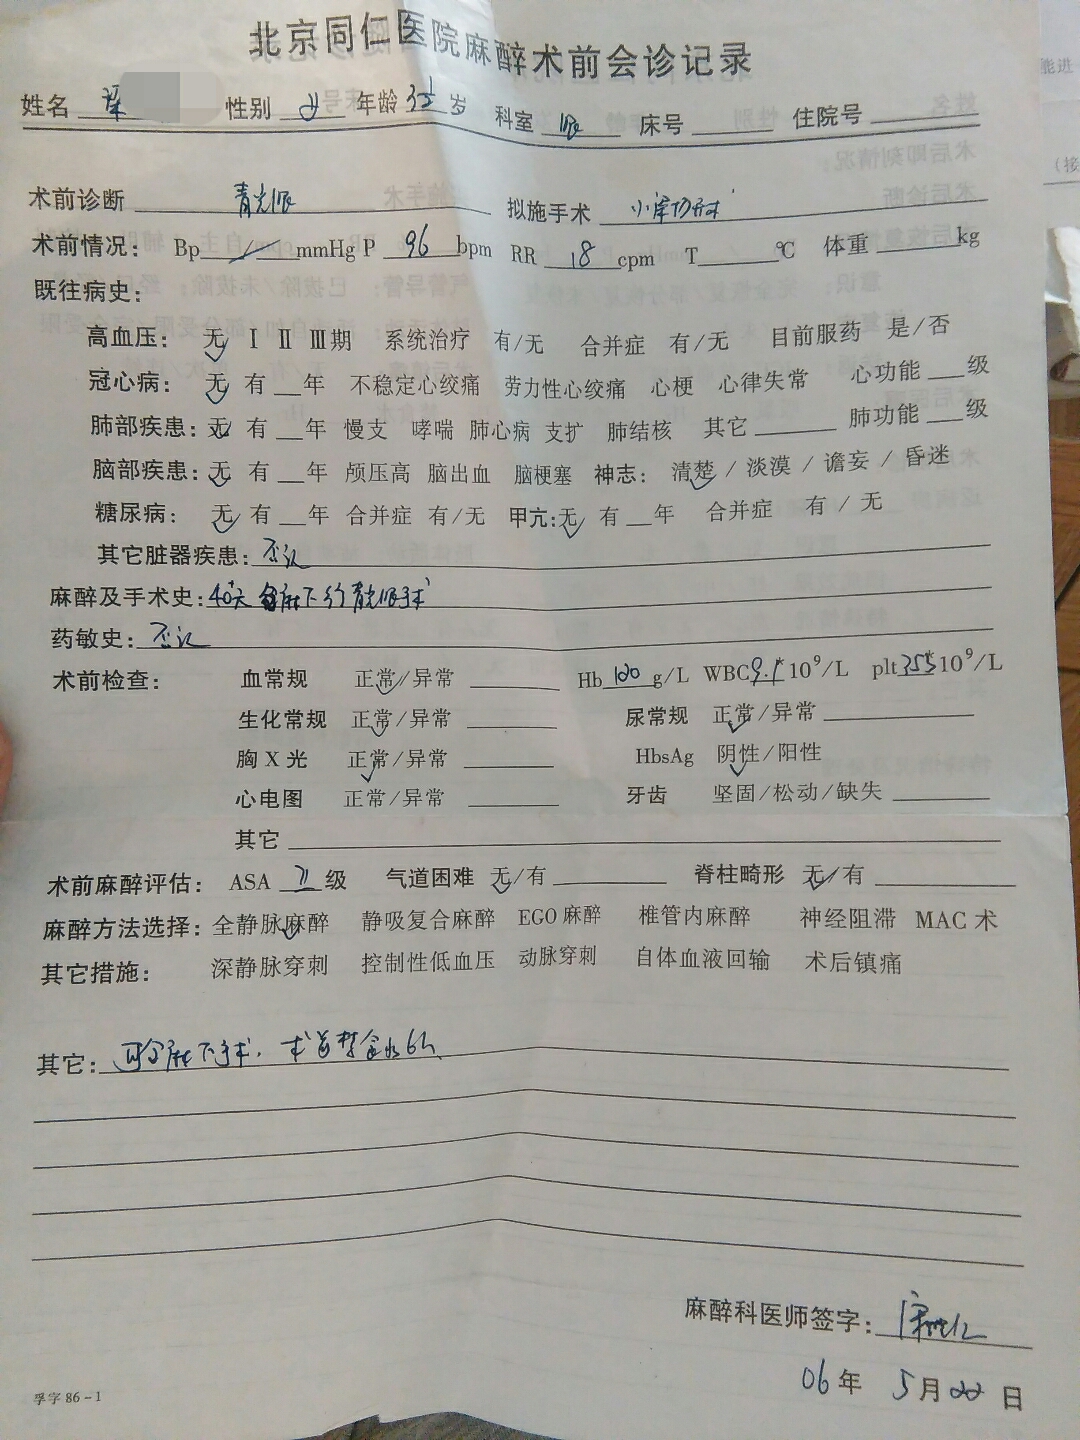 北京同仁医院麻醉术前会诊记录
姓名 性别 女 年龄 岁 科室 眼 床号 住院号
术前诊断 青光眼 拟施手术 小梁切开术
术前情况: Bp / mmHg P 96 bpm RR 18 cpm T ℃ 体重 kg
既往病史:
高血压: 无 Ⅰ Ⅱ Ⅲ期 系统治疗 有/无 合并症 有/无 目前服药 是/否
冠心病: 无 有 年 不稳定心绞痛 劳力性心绞痛 心梗 心律失常 心功能 级
肺部疾患: 无 有 年 慢支 哮喘 肺心病 支扩 肺结核 其它 肺功能 级
脑部疾患: 无 有 年 颅压高 脑出血 脑梗塞 神志: 清楚 / 淡漠 / 谵妄 / 昏迷
糖尿病: 无 有 年 合并症 有/无 甲亢: 无 有 年 合并症 有 / 无
其它脏器疾患: 否认
麻醉及手术史: 40+天 全麻下行青光眼手术
药敏史: 否认
术前检查: 血常规 正常/异常 Hb 120 g/L WBC 9.1*10⁹/L plt 355*10⁹/L
生化常规 正常/异常 尿常规 正常/异常
胸X光 正常/异常 HbsAg 阴性/阳性
心电图 正常/异常 牙齿 坚固/松动/缺失
其它
术前麻醉评估: ASA Ⅱ 级 气道困难 无/有 脊柱畸形 无/有
麻醉方法选择: 全静脉麻醉 静吸复合麻醉 EGO麻醉 椎管内麻醉 神经阻滞 MAC术
其它措施: 深静脉穿刺 控制性低血压 动脉穿刺 自体血液回输 术后镇痛
其它: 可全麻下手术, 术前禁食水6h
麻醉科医师签字:
06年 5月22日
孚字 86-1